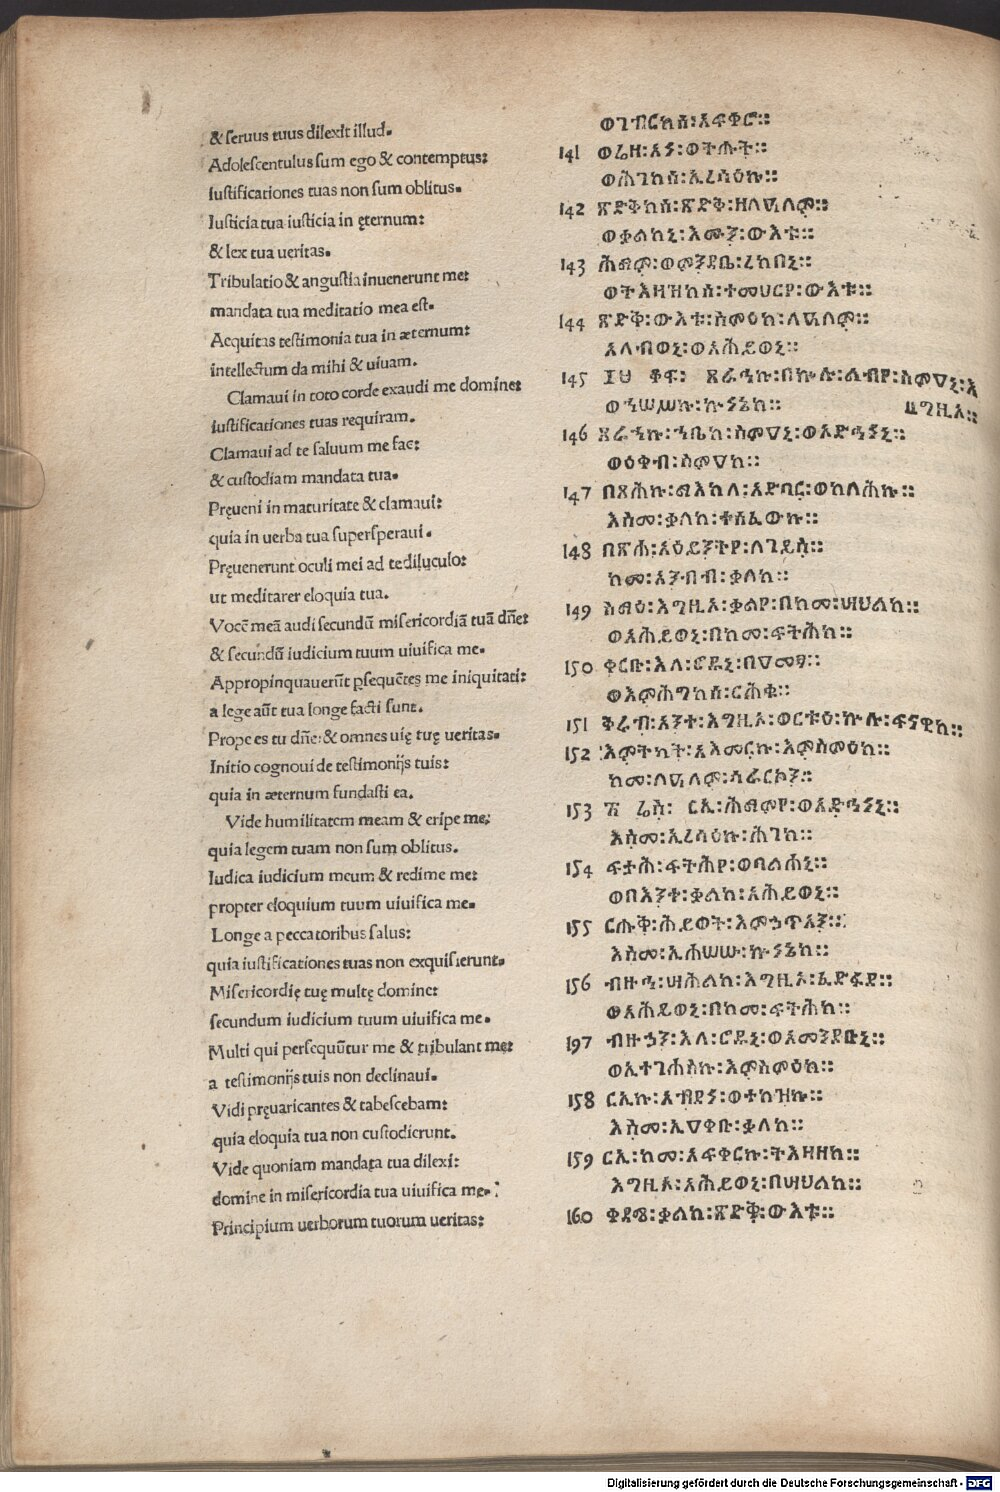 & seruus tuus dilexit illud.
Adolescentulus sum ego & contemptus:
Iustificationes tuas non sum oblitus.
Iusticia tua iusticia in ęternum:
& lex tua ueritas.
Tribulatio & angustia inuenerunt me:
mandata tua meditatio mea est.
Aequitas testimonia tua in æternum:
intellectum da mihi & uiuam.
Clamaui in toto corde exaudi me domine:
iustificationes tuas requiram.
Clamaui ad te saluum me fac:
& custodiam mandata tua.
Pręueni in maturitate & clamaui:
quia in uerba tua supersperaui.
Pręuenerunt oculi mei ad te diluculo:
ut meditarer eloquia tua.
Vocē meā audi secundū misericordiā tuā dñe:
& secundū iudicium tuum uiuifica me.
Appropinquauerūt ꝑsequētes me iniquitati:
a lege aūt tua longe facti sunt.
Prope es tu dñe: & omnes uię tuę ueritas.
Initio cognoui de testimonijs tuis:
quia in æternum fundasti ea.
Vide humilitatem meam & eripe me:
quia legem tuam non sum oblitus.
Iudica iudicium meum & redime me:
propter eloquium tuum uiuifica me.
Longe a peccatoribus salus:
quia iustificationes tuas non exquisierunt.
Misericordię tuę multę domine:
secundum iudicium tuum uiuifica me.
Multi qui persequūtur me & tribulant me:
a testimonijs tuis non declinaui.
Vidi pręuaricantes & tabescebam:
quia eloquia tua non custodierunt.
Vide quoniam mandata tua dilexi:
domine in misericordia tua uiuifica me.
Principium uerborum tuorum ueritas:
ወገብርከሰ፡አፍቀሮ።
141 ወሬዘ፡አነ፡ወትሑት።
ወሕገከሰ፡ኢረሳዕኩ።
142 ጽድቅከሰ፡ጽድቅ፡ዘለዓለም።
ወቃልከኒ፡እሙን፡ውእቱ።
143 ሕማም፡ወምንዳቤ፡ረከበኒ።
ወትእዛዝከሰ፡ተመሀርየ፡ውእቱ።
144 ጽድቅ፡ውእቱ፡ስምዕከ፡ለዓለም።
አለብወኒ፡ወአሕይወኒ።
145 ፲፱ ቆፍ፡ ጸራኅኩ፡በኩሉ፡ልብየ፡ስምዐኒ፡እ
ግዚኦ።
ወኀሠሥኩ፡ኩነኔከ።
146 ጸራኅኩ፡ኀቤከ፡ስምዐኒ፡ወአድኅነኒ።
ወዕቀብ፡ስምዐከ።
147 በጻሕኩ፡ማእከለ፡አድባር፡ወከላሕኩ።
እስመ፡ቃለከ፡ተሰፈውኩ።
148 በጽሐ፡አዕይንትየ፡ለገይስ።
ከመ፡አንብብ፡ቃለከ።
149 ስማዕ፡እግዚኦ፡ቃልየ፡በከመ፡ሣህልከ።
ወአሕይወኒ፡በከመ፡ፍትሕከ።
150 ቀርቡ፡እለ፡ሮዱኒ፡በዐመፃ።
ወእምሕግከሰ፡ርሕቁ።
151 ቅሩብ፡አንተ፡እግዚኦ፡ወርቱዕ፡ኩሉ፡ፍናዊከ።
152 እምትካት፡አእመርኩ፡እምስምዕከ።
ከመ፡ለዓለም፡ሳረርኮን።
153 ፳ ሬስ፡ ርኢ፡ሕማምየ፡ወአድኅነኒ።
እስመ፡ኢረሳዕኩ፡ሕገከ።
154 ፍታሕ፡ፍትሕየ፡ወባልሐኒ።
ወበእንተ፡ቃልከ፡አሕይወኒ።
155 ርሑቅ፡ሕይወት፡እምኃጥአን።
እስመ፡ኢሐሠሡ፡ኩነኔከ።
156 ብዙኅ፡ሣሕልከ፡እግዚኦ፡ፈድፋደ።
ወአሕይወኒ፡በከመ፡ፍትሕከ።
197 ብዙኃን፡እለ፡ሮዱኒ፡ወአመንደቡኒ።
ወኢተገሐስኩ፡እምስምዕከ።
158 ርኢኩ፡አብዳነ፡ወተከዝኩ።
እስመ፡ኢዐቀቡ፡ቃለከ።
159 ርኢ፡ከመ፡አፍቀርኩ፡ትእዛዘከ።
እግዚኦ፡አሕይወኒ፡በሣህልከ።
160 ቀዳሜ፡ቃልከ፡ጽድቅ፡ውእቱ።
Digitalisierung gefördert durch die Deutsche Forschungsgemeinschaft - DFG